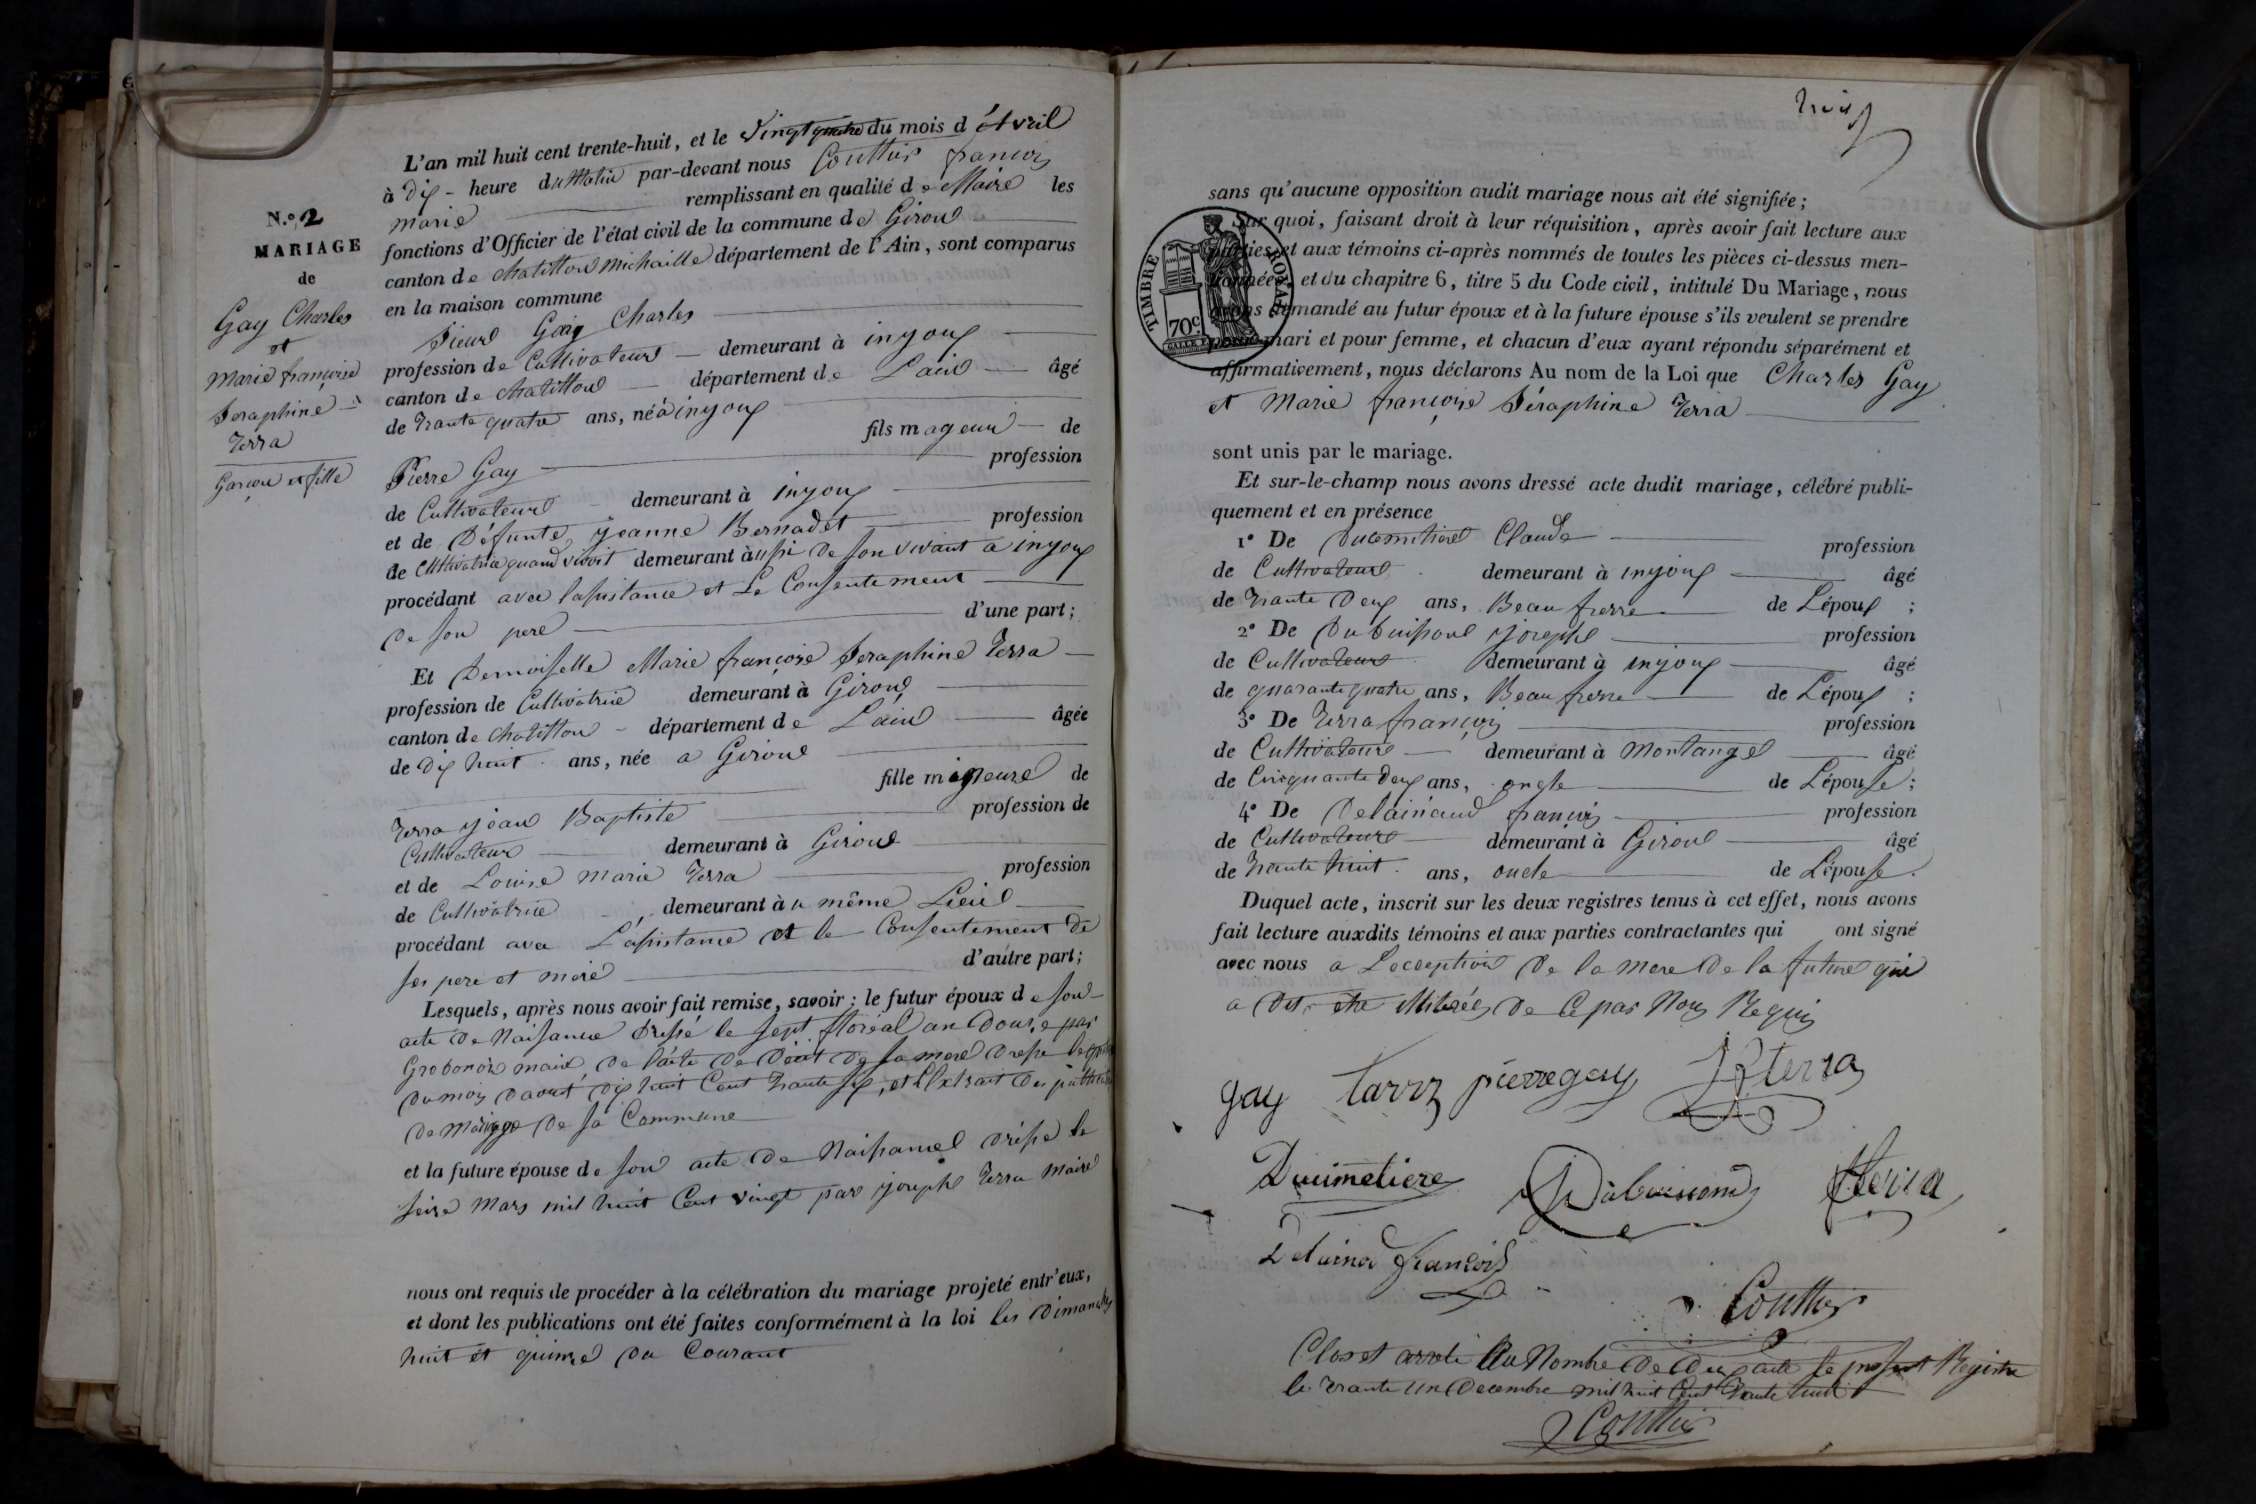 L'an mil huit cent trente-huit, et le vingtquatre du mois d'Avril
à dix - heure du Matin par-devant nous Couttier françois
marie remplissant en qualité de Maire les
fonctions d'Officier de l'état civil de la commune de Giron
N.º 2
MARIAGE
de
Gay Charles
et
Marie françoise
Seraphine
Terra
Garçon et fille
canton de chatillon Michaille département de l'Ain, sont comparus
en la maison commune
Sieur Gay Charles
profession de Cultivateur demeurant à injoux
canton de chatillon département de Lain âgé
de trante quatre ans, né à injoux
fils mageur de
Pierre Gay profession
de Cultivateur demeurant à injoux
et de Défunte jeanne Bernadet profession
de Cultivatrice quand vivoit demeurant aussi de son vivant a injoux
procédant avec lassistance et Le Consentement
de son pere d'une part;
Et Demoiselle Marie françoise Seraphine Terra
profession de Cultivatrice demeurant à Giron
canton de chatillon département de Lain âgée
de dix huit ans, née a Giron
fille mineure de
Terra jean Baptiste profession de
Cultivateur demeurant à Giron
et de Louise marie Terra profession
de Cultivatrice demeurant au même Lieu
procédant avec Lassistance et le Consentement de
ses pere et mere d'autre part;
Lesquels, après nous avoir fait remise, savoir: le futur époux de son
acte de Naissance dressé le sept floréal an douze par
maire, de lacte de décet de sa mere dressé le
du mois daout dix huit Cent trante six, et LExtrait des
de Mariage de sa Commune
et la future épouse de son acte de Naissance dréssé le
seize Mars mil huit Cent vingt par joseph Terra Maire
nous ont requis de procéder à la célébration du mariage projeté entr'eux,
et dont les publications ont été faites conformément à la loi les Dimanches
huit et quinze du Courant
trois
sans qu'aucune opposition audit mariage nous ait été signifiée;
Sur quoi, faisant droit à leur réquisition, après avoir fait lecture aux
parties et aux témoins ci-après nommés de toutes les pièces ci-dessus men-
tionnées, et du chapitre 6, titre 5 du Code civil, intitulé Du Mariage, nous
avons demandé au futur époux et à la future épouse s'ils veulent se prendre
pour mari et pour femme, et chacun d'eux ayant répondu séparément et
affirmativement, nous déclarons Au nom de la Loi que Charles Gay
et Marie françoise Séraphine Terra
TIMBRE ROYAL
70c
sont unis par le mariage.
Et sur-le-champ nous avons dressé acte dudit mariage, célébré publi-
quement et en présence
1º De Ducimetiere Claude profession
de Cultivateur demeurant à injoux âgé
de trante deux ans, Beau frere de Lépoux ;
2º De Dubuisson joseph profession
de Cultivateur demeurant à injoux âgé
de quarante quatre ans, Beau frere de Lépoux ;
3º De Terra françois profession
de Cultivateur demeurant à Montange âgé
de Cinquante deux ans, oncle de Lépouse ;
4º De Delainaud françois profession
de Cultivateur demeurant à Giron âgé
de trante huit ans, oncle de Lépouse.
Duquel acte, inscrit sur les deux registres tenus à cet effet, nous avons
fait lecture auxdits témoins et aux parties contractantes qui ont signé
avec nous a Lexception de la mere de la future qui
a dit être illitérée de ce par Nous Requis
gay Tarra pierre gay JBterra
Ducimetiere Dubuisson fterra
françois
Couttier
Clos et arreté au Nombre de deux acte le present Registre
le trante un Decembre mil huit Cent trante huit
Couttier